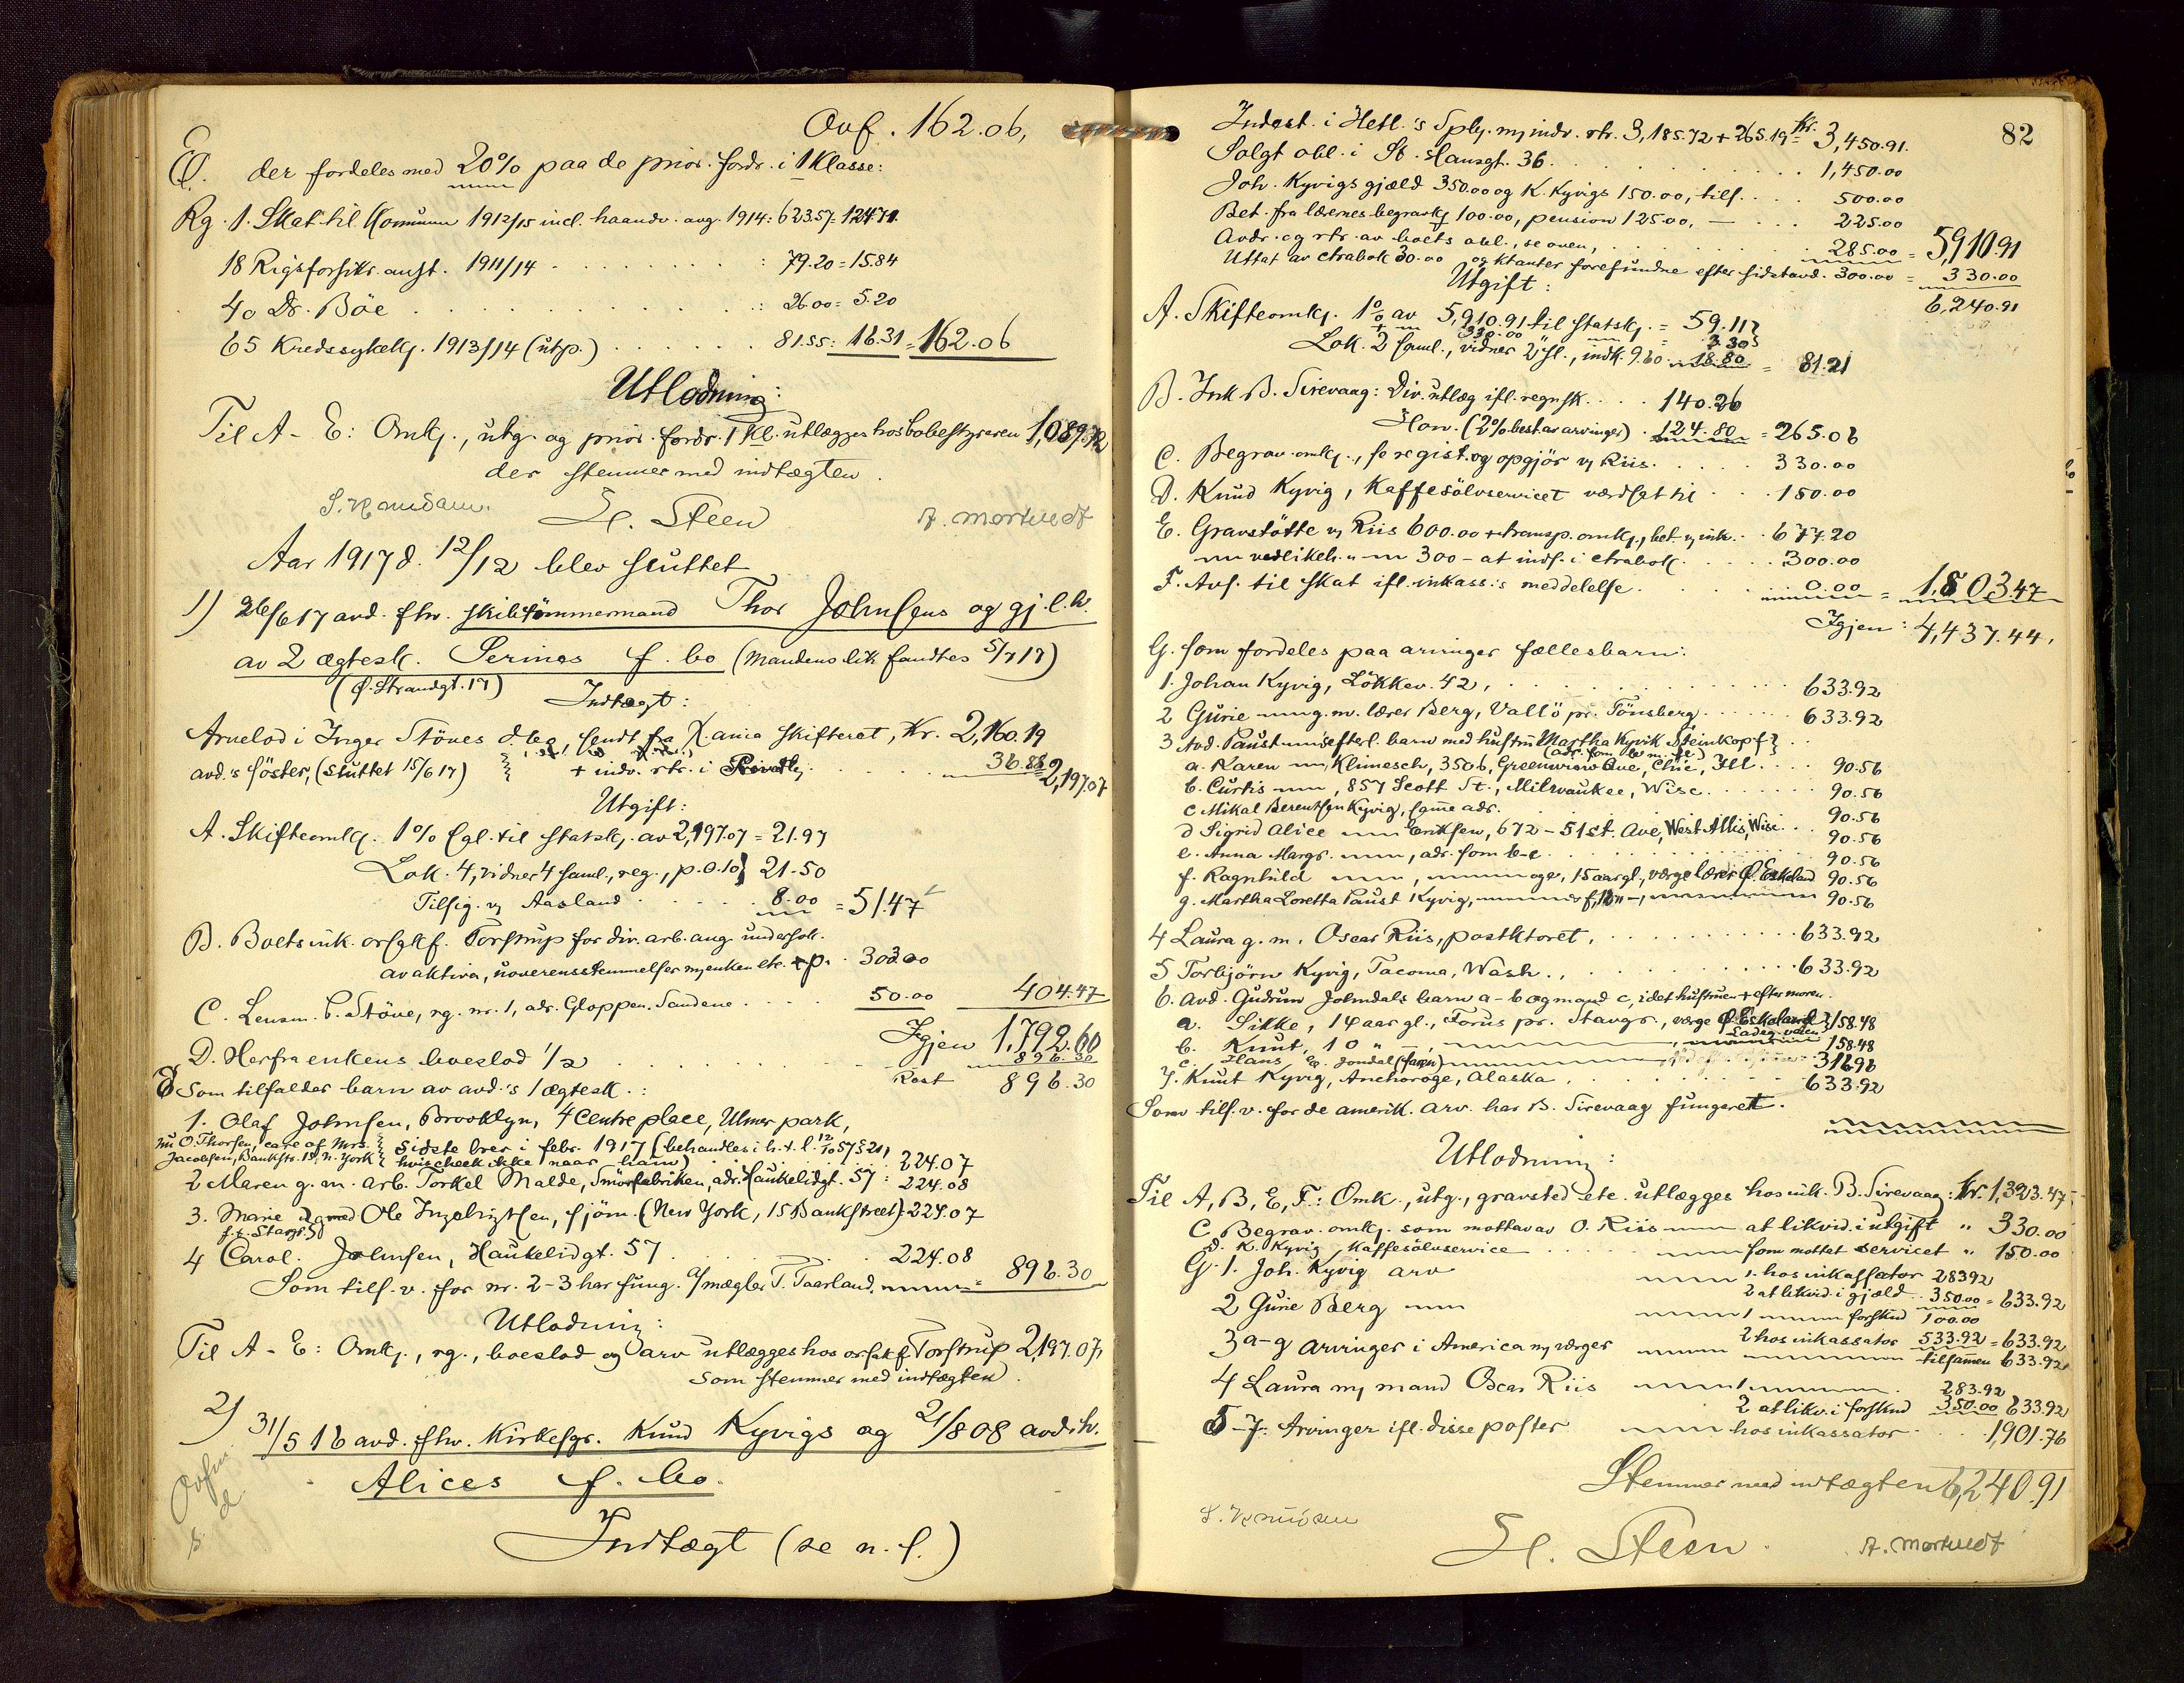 Ovf. 162.06,
E. der fordeles med 20% paa de prior. fordr. i 1 Klasse:
Rg. 1. Skat til Komunen 1912/15 incl. haandv. avg. 1914: 623.57 = 124.71
18 Rigsforsikr. anst. 1911/14 . . . : 79.20 = 15.84
40 Dr. Böe . . . : 26.00 = 5.20
65 Kredssykek. 1913/14 (utp.) . . . 81.55: 16.31 = 162.06
Utlodning:
Til A - E: Omk., utg. og prior. fordr. 1 Kl. utlægges hos bobestyreren 1,089.72
der stemmer med indtægten.
S. Knudsen. H. Steen A. Mortvedt
Aar 1917 d. 12/12 blev sluttet
1) 26/6 17 avd. fhv. skibstömmermand Thor Johnsens og gj. l. h.
av 2 ægtesk. Serines f. bo (mandens lik fandtes 5/7 17)
(Ø. Strandgt. 17)
Indtægt:
Arvelod i Inger Stöves d. bo, sendt fra X.ania skifteret, Kr. 2,160.19
avd.'s söster, (sluttet 15/6 17) + indv. rtr. i Privatbk. . . . 36.88 = 2,197.07
Utgift:
A. Skifteomk. 1% Cgl. til statsk. av 2,197.07 = 21.97
Lok. 4, vidner 4 saml., reg., p. 0.10 } 21.50
Tilsig. v. Aasland . . . 8.00 = 51.47
B. Boets ink. orsakf. Torstrup for div. arb. ang. undersök.
av aktiva, uoverensstemmelser m. enken etc. + p. . 303.00
C. Lensm. B. Stöve, rg. nr. 1, adr. Gloppen, Sandene . . . 50.00 404.47
Igjen 1,792.60
D. Herfra enkens boeslod 1/2 . . . 896.30
Rest 896.30
E Som tilfalder barn av avd.'s 1 ægtesk.:
1. Olaf Johnsen, Brooklyn, 4 Centre place, Ulmer park,
nu O. Thorsen, care of Mrs. } sidste brev i febr. 1917 (behandles i h. t. l. 12/10 57 § 21,
Jacobsen, Bankstr. 15, N. York } hvis check ikke naar ham) . . . 224.07
2 Maren g. m. arb. Torkel Malde, Smörfabriken, adr. Haukelidgt. 57 : 224.08
3. Marie g. med Ole Ingebrigtsen, sjöm. (New York, 15 Bankstreet): 224.07
f. t. Stavgr.
4 Carol. Johnsen, Haukelidgt. 57 . . . 224.08
Som tilf. v. for nr. 2-3 har fung. s/mægler T. Taarland. = 896.30
Utlodning:
Til A - E: Omk., rg., boeslod og arv utlægges hos orsakf. Torstrup 2,197.07,
som stemmer med indtægten.
2) 31/5 16 avd. fhv. Kirkesgr. Knud Kyvigs og 21/8 08 avd. h.
Alices f. bo.
Indtægt (se n. s.)
82
Indest. i Hetl.'s Spbk. m. indv. rtr. 3,185.72 + 265.19 = Kr. 3,450.91.
Solgt obl. i St. Hansgt. 36. . . . 1,450.00
Joh. Kyvigs gjæld 350.00 og K. Kyvigs 150.00, tils. . . . 500.00
Bet. fra lærernes begravk. 100.00, pension 125.00, — . . . 225.00
Avdr. og rtr. av boets obl., se oven, . . . 285.00 = 5,910.91
Uttat av ctrabok 30.00 og ktanter forefundne efter sidstavd. 300.00 = 330.00
Utgift: 6,240.91
A. Skifteomk. 1% av 5,910.91 til statsk. = 59.11
+ 330.00 = 3.30
Lok. 2 saml., vidner 2 sl., indk. 9.60. 18.80 = 81.21
B. Ink B. Sirevaag: Div. utlæg ifl. regnsk. . . . 140.26
Hon. (2% best. av arvinger) . 124.80 = 265.06
C. Begrav. omk., se regist. og opgjör v. Riis. . . . 330.00
D. Knud Kyvig, Kaffesölvservicet værdsat til . . . 150.00
E. Gravstötte v. Riis 600.00 + transp. omk., bet. v. ink. . . 677.20
vedlikeh. 300 - at inds. i ctrabok . . . 300.00
F. Avs. til skat ifl. inkass.'s meddelelse . . . 0.00 = 1,803.47
Igjen: 4,437.44.
G. som fordeles paa arvinger fællesbarn:
1. Johan Kyvig, Lökkev. 42, . . . 633.92
2 Gurie g. m. lærer Berg, Vallö pr. Tönsberg . . . 633.92
3 Avd. Paust efterl. barn med hustru Martha Kyvik Steinkopf } . .
a. Karen Klimesch, 3506, Greenwiow Ave, Chic, Ill. . . . 90.56
b. Curtis, 857 Scott St., Milwaukee, Wisc. . . . 90.56
c Mikal Berentsen Kyvig, samme adr. . . . 90.56
d Sigrid Alice Eriksen, 672 - 51st. Ave, West Allis, Wisc. . . 90.56
e. Anna Margr., adr. som b-c . . . 90.56
f. Ragnhild, 15 aar gl., værge lærer Ø. Eskeland 90.56
g. Martha Loretta Paust Kyvig, 90.56
4 Laura g. m. Oscar Riis, postktoret, . . . 633.92
5 Torbjörn Kyvig, Tacoma, Wash., . . . 633.92
6. avd. Gudrun Johndals barn a - b og mand c, idet hustruen + efter moren.
a. Sikke, 14 aar gl., Forus pr. Stavgr., værge Ø. Eskeland } 158.48
Ladeg. veien
b. Knut, 10 " — 158.48
c. Hans, Jondal (faren) 316.96
7. Knut Kyvig, Anchorage, Alaska, . . . 633.92
Som tilf. v. for de amerik. arv. har B. Sirevaag fungeret.
Utlodning:
Til A, B, E, F: Omk., utg., gravsted etc. utlægges hos ink. B. Sirevaag: Kr. 1,323.47
C. Begrav. omk. som mottav av O. Riis at likvid. i utgift " 330.00
D. K. Kyvig Kaffesölvservice som mottat servicet " 150.00
G. 1. Joh. Kyvig arv 1. hos inkassator 283.92
2 at likvid. i gjæld . . 350.00 = 633.92
2 Gurie Berg 1 forskud 100.00
2 hos inkassator 533.92 = 633.92
3 a-g arvinger i America m. værger tilsammen 633.92
4 Laura m. mand Oscar Riis 1 . 283.92
2 at likv. i forskud 350.00 633.92
5-7. Arvinger ifl. disse poster hos inkassator . . . 1,901.76
Stemmer med indtægten 6,240.91
S. Knudsen
H. Steen. A. Mortvedt